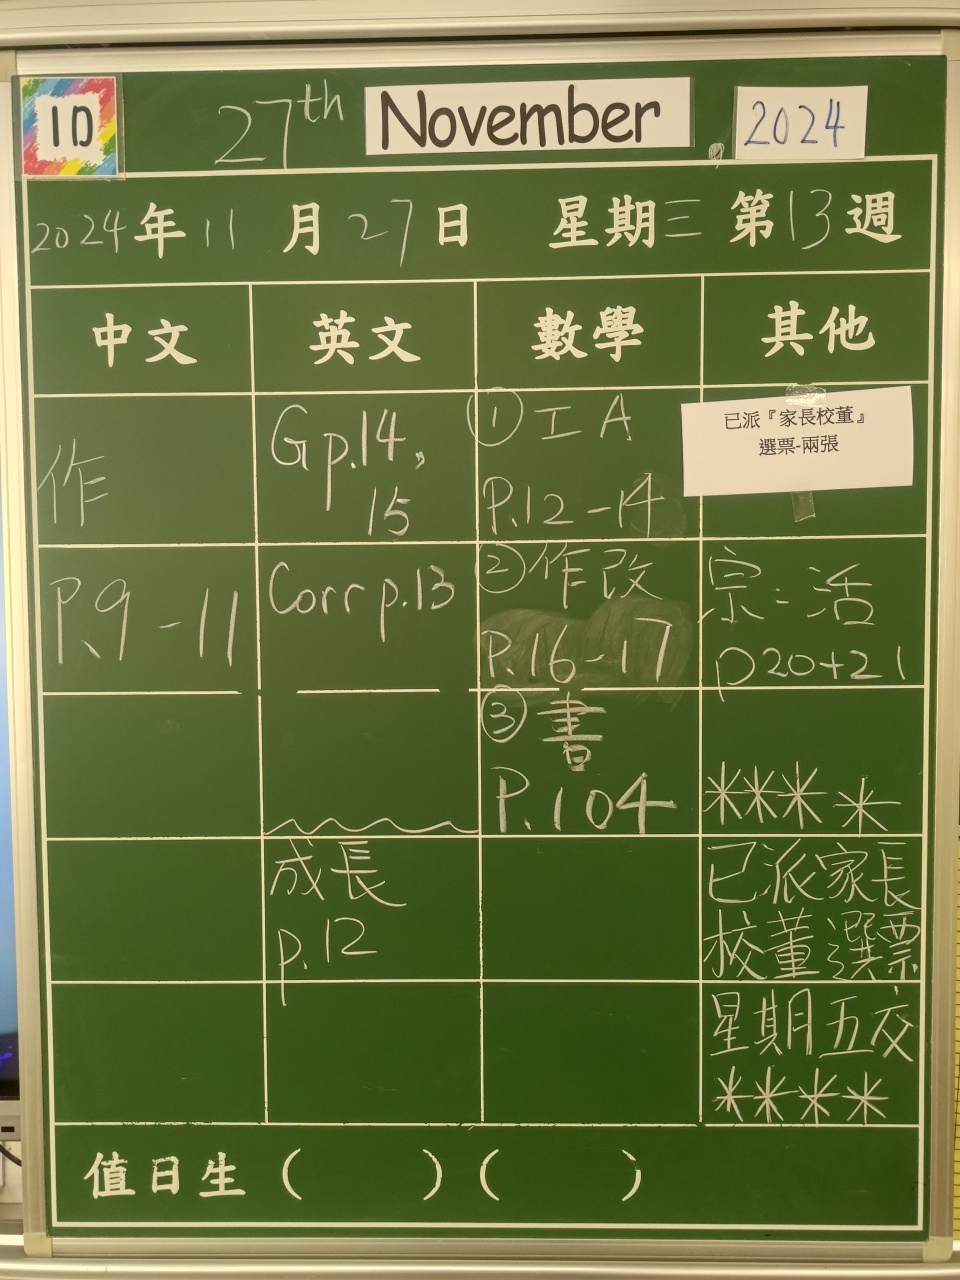 1D
27th November, 2024
2024年11月27日 星期三 第13週
中文 英文 數學 其他
作
P.9-11
Gp.14,
15
Corr p.13
成長
p.12
①IA
P.12-14
②作改
P.16-17
③書
P.104
已派『家長校董』
選票-兩張
宗:活
p20+21
已派家長
校董選票
星期五交
值日生( )( )